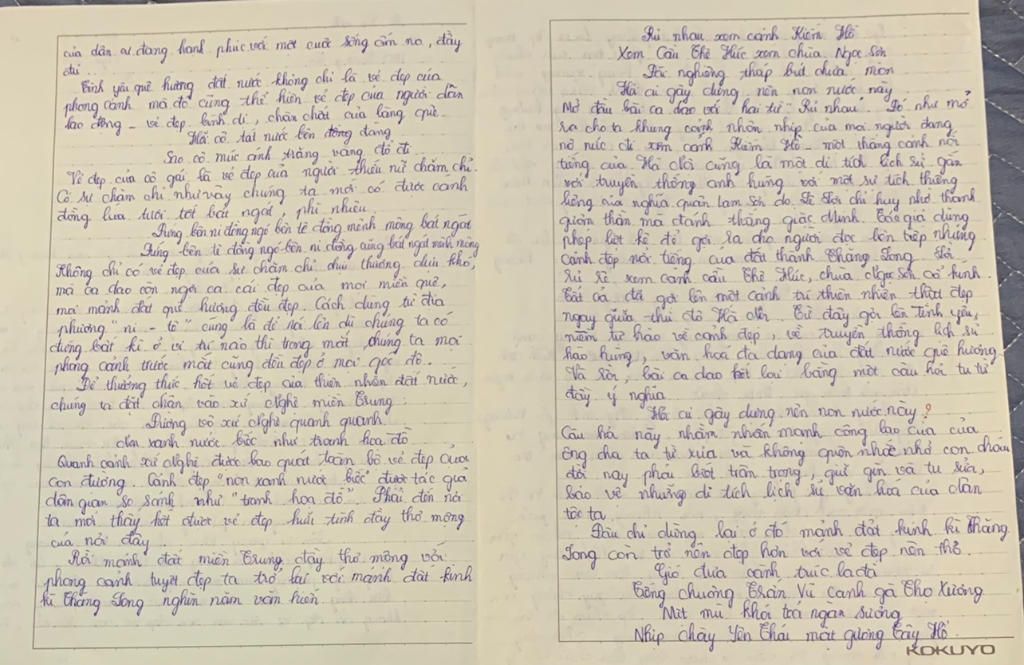 của dân cư đang hạnh phúc với một cuộc sống ấm no, đầy
đủ.
Tình yêu quê hương đất nước không chỉ là vẻ đẹp của
phong cảnh mà đó cũng thể hiện vẻ đẹp của người dân
lao động - vẻ đẹp bình dị, chân chất của làng quê.
Hỡi cô tát nước bên đồng đàng
Sao cô múc ánh trăng vàng đổ đi.
Vẻ đẹp của cô gái là vẻ đẹp của người thiếu nữ chăm chỉ.
Có sự chăm chỉ như vậy chúng ta mới có được cánh
đồng lúa tươi tốt bát ngát, phì nhiêu.
Đứng bên ni đồng ngó bên tê đồng mênh mông bát ngát
Đứng bên tê đồng ngó bên ni đồng cũng bát ngát mênh mông
Không chỉ có vẻ đẹp của sự chăm chỉ chịu thương chịu khó,
mà ca dao còn ngợi ca cái đẹp của mọi miền quê,
mọi mảnh đất quê hương đều đẹp. Cách dùng từ địa
phương "ni - tê" cũng là để nói lên dù chúng ta có
đứng bất kì ở vị trí nào thì trong mắt chúng ta mọi
phong cảnh trước mắt cũng đều đẹp ở mọi góc độ.
Để thưởng thức hết vẻ đẹp của thiên nhiên đất nước,
chúng ta đặt chân vào xứ Nghệ miền Trung:
Đường vô xứ Nghệ quanh quanh
Non xanh nước biếc như tranh họa đồ.
Quanh cảnh xứ Nghệ được bao quát toàn bộ vẻ đẹp của
con đường. Cảnh đẹp "non xanh nước biếc" được tác giả
dân gian so sánh như "tranh họa đồ". Phải đến nơi
ta mới thấy hết được vẻ đẹp hữu tình đầy thơ mộng
của nơi đây.
Rời mảnh đất miền Trung đầy thơ mộng với
phong cảnh tuyệt đẹp ta trở lại với mảnh đất kinh
kì Thăng Long nghìn năm văn hiến.
Rủ nhau xem cảnh Kiếm Hồ
Xem Cầu Thê Húc xem chùa Ngọc Sơn
Đài nghiêng tháp bút chưa mòn
Hỏi ai gây dựng nên non nước này.
Mở đầu bài ca dao với hai từ "Rủ nhau". Đó như mở
ra cho ta khung cảnh nhộn nhịp của mọi người đang
nô nức đi xem cảnh Kiếm Hồ - một thắng cảnh nổi
tiếng của Hà Nội cũng là một di tích lịch sử gắn
với truyền thống anh hùng với một sự tích thiêng
liêng của nghĩa quân Lam Sơn do Lê Lợi chỉ huy như thanh
gươm thần mà đánh thắng giặc Minh. Tác giả dùng
phép liệt kê để gợi ra cho người đọc liên tiếp những
cảnh đẹp nổi tiếng của đất thành Thăng Long. Lời
rủ rê xem cảnh cầu Thê Húc, chùa Ngọc Sơn cổ kính.
Tất cả đã gợi lên một cảnh trí thiên nhiên thật đẹp
ngay giữa thủ đô Hà Nội. Từ đây gợi lên tình yêu,
niềm tự hào về cảnh đẹp, về truyền thống lịch sử
hào hùng, văn hóa đa dạng của đất nước quê hương.
Và rồi, bài ca dao kết lại bằng một câu hỏi tu từ
đầy ý nghĩa
Hỏi ai gây dựng nên non nước này?
Câu hỏi này nhằm nhấn mạnh công lao của của
ông cha ta từ xưa và không quên nhắc nhở con cháu
đời nay phải biết trân trọng, giữ gìn và tu sửa,
bảo vệ những di tích lịch sử văn hoá của dân
tộc ta.
Đâu chỉ dừng lại ở đó mảnh đất kinh kì Thăng
Long còn trở nên đẹp hơn với vẻ đẹp nên thơ.
Gió đưa cành trúc la đà
Tiếng chuông Trấn Vũ canh gà Thọ Xương
Mịt mù khói toả ngàn sương
Nhịp chày Yên Thái mặt gương Tây Hồ.
KOKUYO